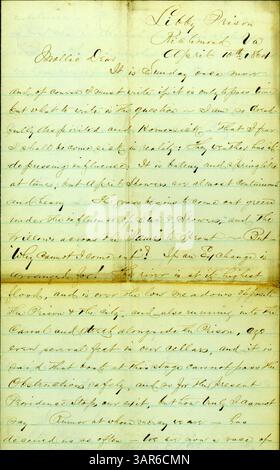 Libby Prison
Richmond Va
April 10th 1864
Mollie Dear
It is Sunday once more
and of course I must write if it is only a few lines
but what to write is the question I am so dread-
fully dispirited and Homesick, that I fear
I shall become sick in reality: The weather has a
depressing influence. It is balmy and springlike
at times, but April Showers are almost continuous
and heavy The grass begins to come out green
under the influence of Showers, and the
Willows across the James But
Why cannot I come out? If an Exchange is
The river is at its highest
flood, and is over the low meadows opposite
the Prison & the city, and also running into the
Canal and alongside the Prison,
even several feet in our cellars, and it is
said that boats at this stage cannot pass the
Obstructions safely, and so for the present
Providence stops our exit, but how truly I cannot
say Rumor at whose mercy we are has
deceived us so often We are upon a rack of
alamy
Image ID: 3AR6CMN
www.alamy.com